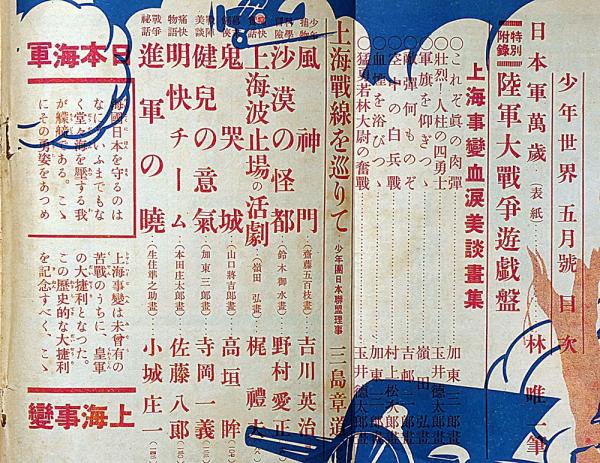 少年世界 五月號 目次
日本軍萬歲…表紙…林 唯一筆
特別附錄 陸軍大戰爭遊戯盤
上海事變血淚美談畫集
○これぞ眞の肉彈…加東三郎畫
○壯烈!人柱の四勇士…玉井德太郎畫
○軍旗を仰ぎつゝ…嶺田弘畫
○敵彈何ものぞ…吉邨二郎畫
○空中の白兵戰…村上松次郎畫
○血煙を浴びつゝ…加東三郎畫
○猛勇若林大尉の奮戰…玉井德太郎畫
上海戰線を巡りて 少年團日本聯盟理事 三島章道
少年捕物 風神門(齋藤五百枝畫)吉川英治
科學冒險 沙漠の怪都(鈴木御水畫)野村愛正
上海波止場の活劇(嶺田 弘畫)梶 禮太
鬼哭城(山口將吉郎畫)高垣眸
戰陣美談 健兒の意氣(加東三郎畫)寺岡一義
痛快物語 明快チーム(本田庄太郎畫)佐藤八郎
戰爭祕話 進軍の曉(生住準之助畫)小城庄一
日本海軍
海國日本を守るのは
なにといふまでもな
く堂々海を壓する我
が艨艟である。こゝ
にその勇姿をあつめ
上海事變は未曾有の
苦戰のうちに、皇軍
の大捷利となつた。
この歷史的な大捷利
を記念すべく、こゝ
上海事變